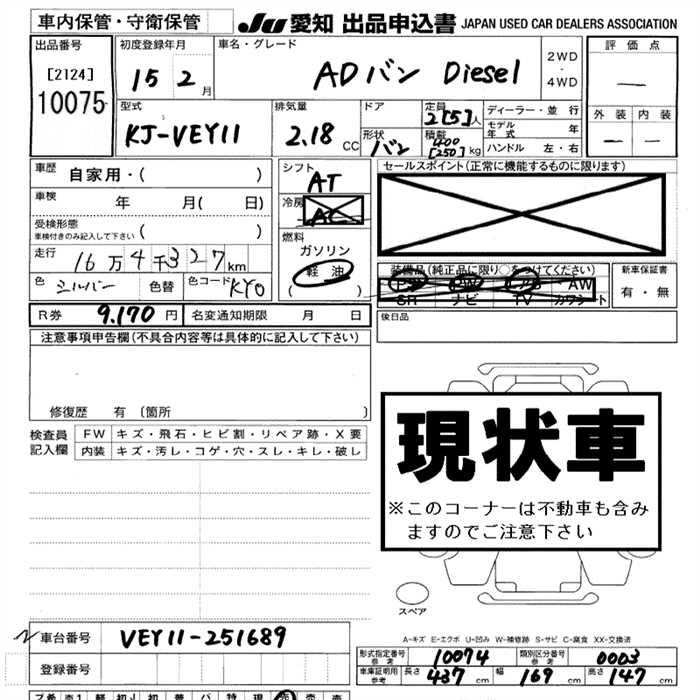 車内保管・守衛保管
JU 愛知 出品申込書 JAPAN USED CAR DEALERS ASSOCIATION
出品番号
[2124]
10075
初度登録年月
15 2 月
車名・グレード
ADバン Diesel
2WD
・
4WD
評価点
—
外装 内装
— —
型式
KJ-VEY11
排気量
2.18 CC
ドア
形状
バン
定員
2[5]人
積載
400
[250]kg
ディーラー・並行
モデル
年式 年
ハンドル 左・右
車歴 自家用・( )
車検 年 月( 日)
受検形態
車検付きのみ記入して下さい ( )
走行 16万4千327km
色 シルバー 色替 色コード KY0
シフト
AT
冷房
AC
燃料
ガソリン
軽油
( )
セールスポイント(正常に機能するものに限ります)
装備品(純正品に限り○をつけてください)
PS PW AW
SR ナビ TV カワシート
新車保証書
有・無
後日品
R券 9.170 円 名変通知期限 月 日
注意事項申告欄(不具合内容等は具体的に記入して下さい)
修復歴 有 [箇所 ]
検査員
記入欄
FW キズ・飛石・ヒビ割・リペア跡・X要
内装 キズ・汚レ・コゲ・穴・スレ・キレ・破レ
現状車
※このコーナーは不動車も含み
ますのでご注意下さい
スペア
A-キズ E-エクボ U-凹み W-補修跡 S-サビ C-腐食 XX-交換済
車台番号 VEY11-251689
登録番号
形式指定番号
参考 10074
類別区分番号
参考 0003
車庫証明用
参考 長さ 437 cm 幅 169 cm 高さ 147 cm